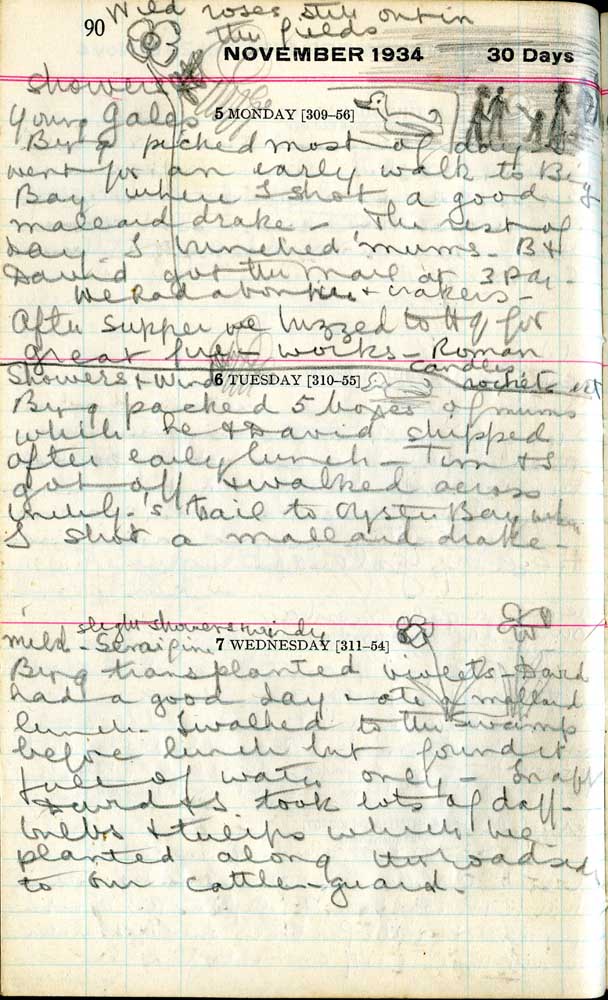 90
Wild roses still out in
the fields
NOVEMBER 1934 30 Days
showers
young gales
5 MONDAY [309–56]
Berg picked most of day
went for an early walk to Big
Bay where I shot a good
mallard drake – The rest of
day I bunched 'mums. B +
David got the mail at 3 P.M. –
We had a bonfire + crakers –
After supper we buzzed to Hq for
great fire – works – Roman
candles
rockets
showers + wind
6 TUESDAY [310–55]
Berg packed 5 boxes of mums
which he + David shipped
after early lunch – Tim + I
got off + walked across
's trail to Oyster Bay when
I shot a mallard drake –
slight showers + windy
mild –
7 WEDNESDAY [311–54]
Berg transplanted violets – David
had a good day + ate mallard
lunch. I walked to the Swamp
before lunch but found it
full of water only –
David + I took lots of daff-
bulbs + tulips which we
planted along the roadside
to our cattle-guard –